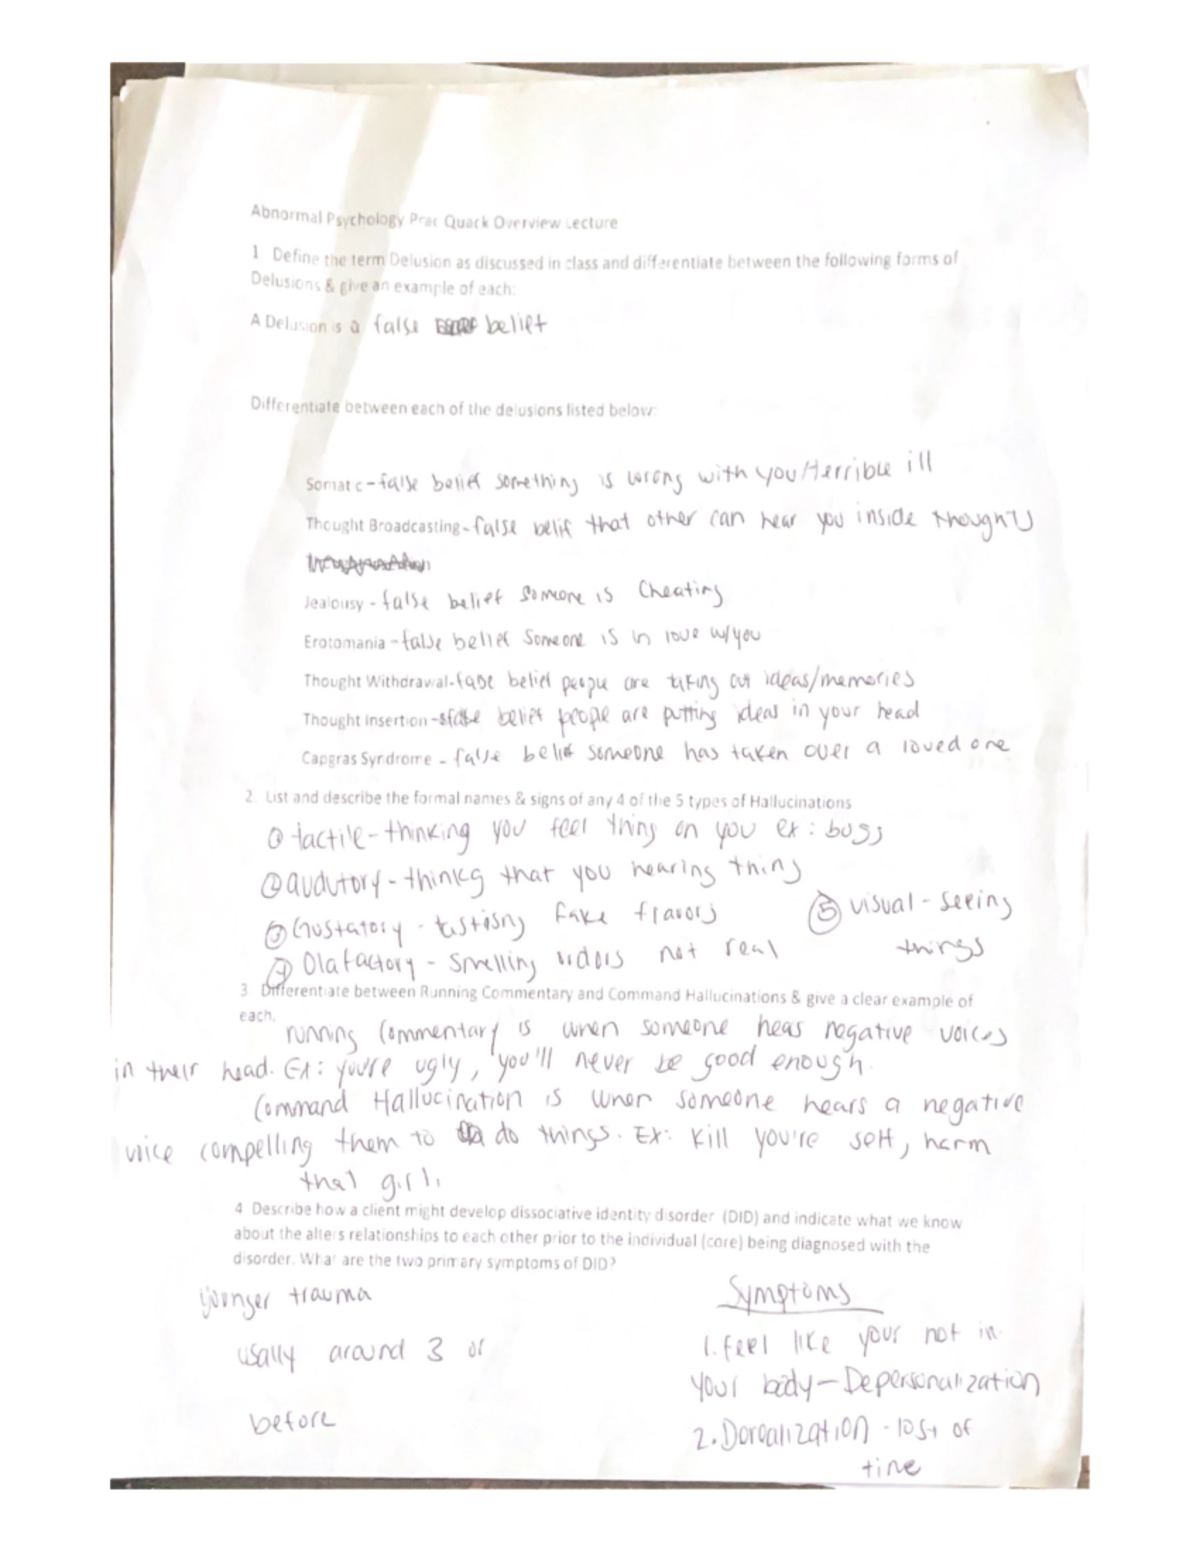 Abnormal Psychology Prac Quack Overview Lecture
1 Define the term Delusion as discussed in class and differentiate between the following forms of
Delusions & give an example of each:
A Delusion is a false belift
Differentiate between each of the delusions listed below:
Somatic - false belief something is wrong with you/terrible ill
Thought Broadcasting - false belif that other can hear you inside thoughts
Jealousy - false belief someone is Cheating
Erotomania - false belief Someone is in love w/you
Thought Withdrawal - false belief people are taking out ideas/memories
Thought Insertion - false belief people are putting ideas in your head
Capgras Syndrome - false belief someone has taken over a loved one
2. List and describe the formal names & signs of any 4 of the 5 types of Hallucinations
① tactile - thinking you feel thing on you ex: bugs
② audutory - thinkg that you hearing thing
③ Gustatory - tastisng fake flavors
⑤ visual - seeing
④ Olafactory - Smelling odors not real
things
3 Differentiate between Running Commentary and Command Hallucinations & give a clear example of
each.
running Commentary is when someone heas negative voices
in their head. Ex: you're ugly, you'll never be good enough.
Command Hallucination is when someone hears a negative
voice compelling them to do things. Ex: Kill you're self, harm
that girl.
4 Describe how a client might develop dissociative identity disorder (DID) and indicate what we know
about the alters relationships to each other prior to the individual (core) being diagnosed with the
disorder. What are the two primary symptoms of DID?
younger trauma
Symptoms
usally around 3 or
1. feel like your not in
your body - Depersonalization
before
2. Derealization - lost of
time